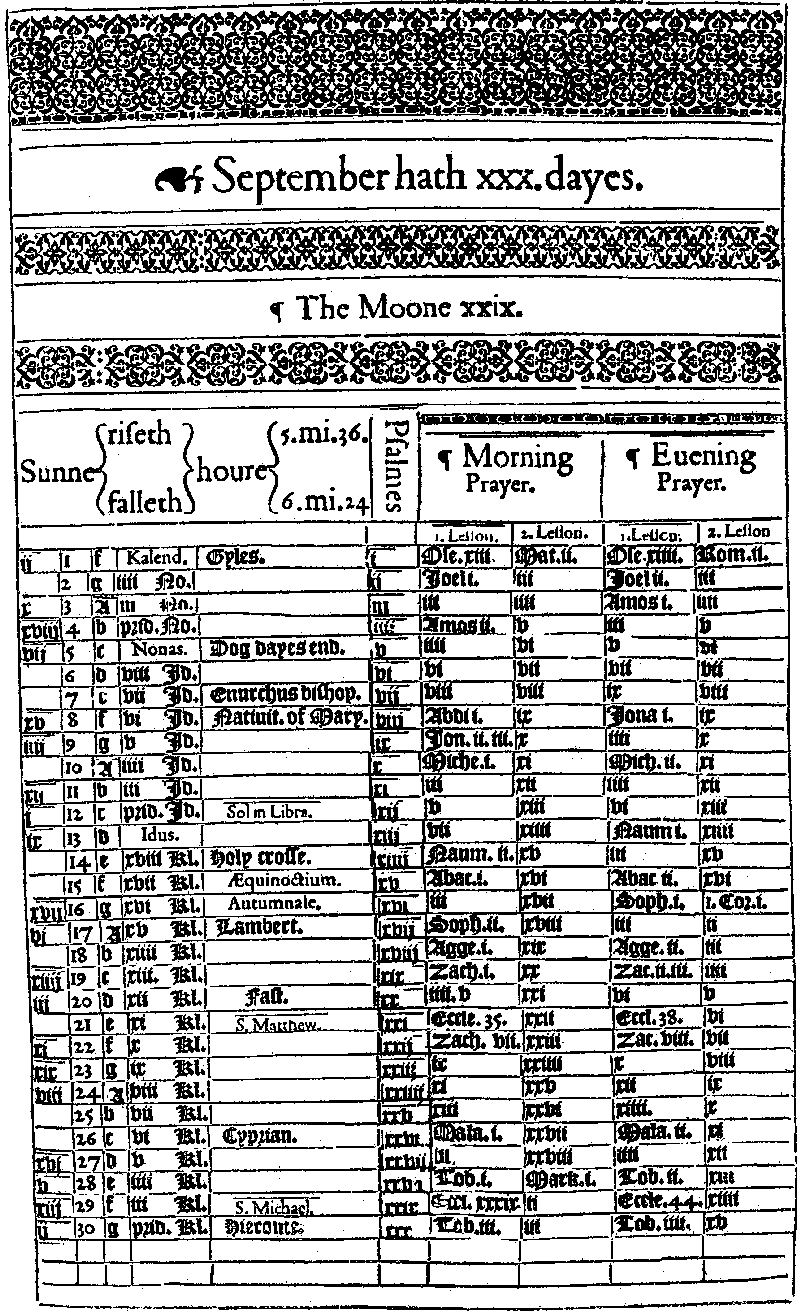 September hath xxx. dayes.
¶ The Moone xxix.
Sunne riseth falleth houre 5.mi.36. 6.mi.24 Psalmes ¶ Morning Prayer. ¶ Euening Prayer.
1. Lesson. 2. Lesson. 1. Lesson. 2. Lesson
ii 1 f Kalend. Gyles. i Ose.xiii. Mat.ii. Ose.xiiii. Rom.ii.
2 g iiii No. ii Joel i. iii Joel ii. iii
x 3 A iii No. iii iii iiii Amos i. iiii
xviij 4 b prid.No. iiii Amos ii. v iii v
vij 5 c Nonas. Dog dayes end. v iiii vi v vi
6 d viii Id. vi vi vii vii vii
7 e vii Id. Enurchus bishop. vij viii viii ix viii
xv 8 f vi Id. Natiuit. of Mary. viij Abdi i. ix Jona i. ix
iiij 9 g v Id. ix Jon.ii.iii. x iiii x
10 A iiii Id. x Miche.i. xi Mich. ii. xi
xij 11 b iii Id. xi iii xii iiii xii
i 12 c prid. Id. Sol in Libra. xij v xiii vi xiii
ix 13 d Idus. xiij vii xiiii Naum i. xiiii
14 e xviii Kl. Holy crosse. xiiij Naum. ii. xv iii xv
15 f xvii Kl. Æquinoctium. xv Abac.i. xvi Abac ii. xvi
xvij 16 g xvi Kl. Autumnale. xvi iii xvii Soph.i. 1. Cor.i.
vi 17 A xv Kl. Lambert. xvij Soph.ii. xviii iii ii
18 b xiiii Kl. xviij Agge.i. xix Agge. ii. iii
xiiij 19 c xiii. Kl. xix Zach.i. xx Zac.ii.iii. iiii
iij 20 d xii Kl. Fast. xx iiii.v xxi vi v
21 e xi Kl. S. Matthew. xxi Eccle. 35. xxii Eccl.38. vi
xi 22 f x Kl. xxij Zach. vii. xxiii Zac. viii. vii
xix 23 g ix Kl. xxiij ix xxiiii x viii
viii 24 A viii Kl. xxiiij xi xxv xii ix
25 b vii Kl. xxv xiii xxvi xiiii. x
26 c vi Kl. Cyprian. xxvi Mala. i. xxvii Mala. ii. xi
xvi 27 d v Kl. xxvij iii. xxviii iiii xii
v 28 e iiii Kl. Tob.i. Mark.i. Tob. ii. xiii
xiij 29 f iii Kl. S. Michael. xxix Eccl. xxxix ii Eccle.44. xiiii
ii 30 g prid. Kl. Hierome. xxx Tob.iii. iii Tob. iiii. xv